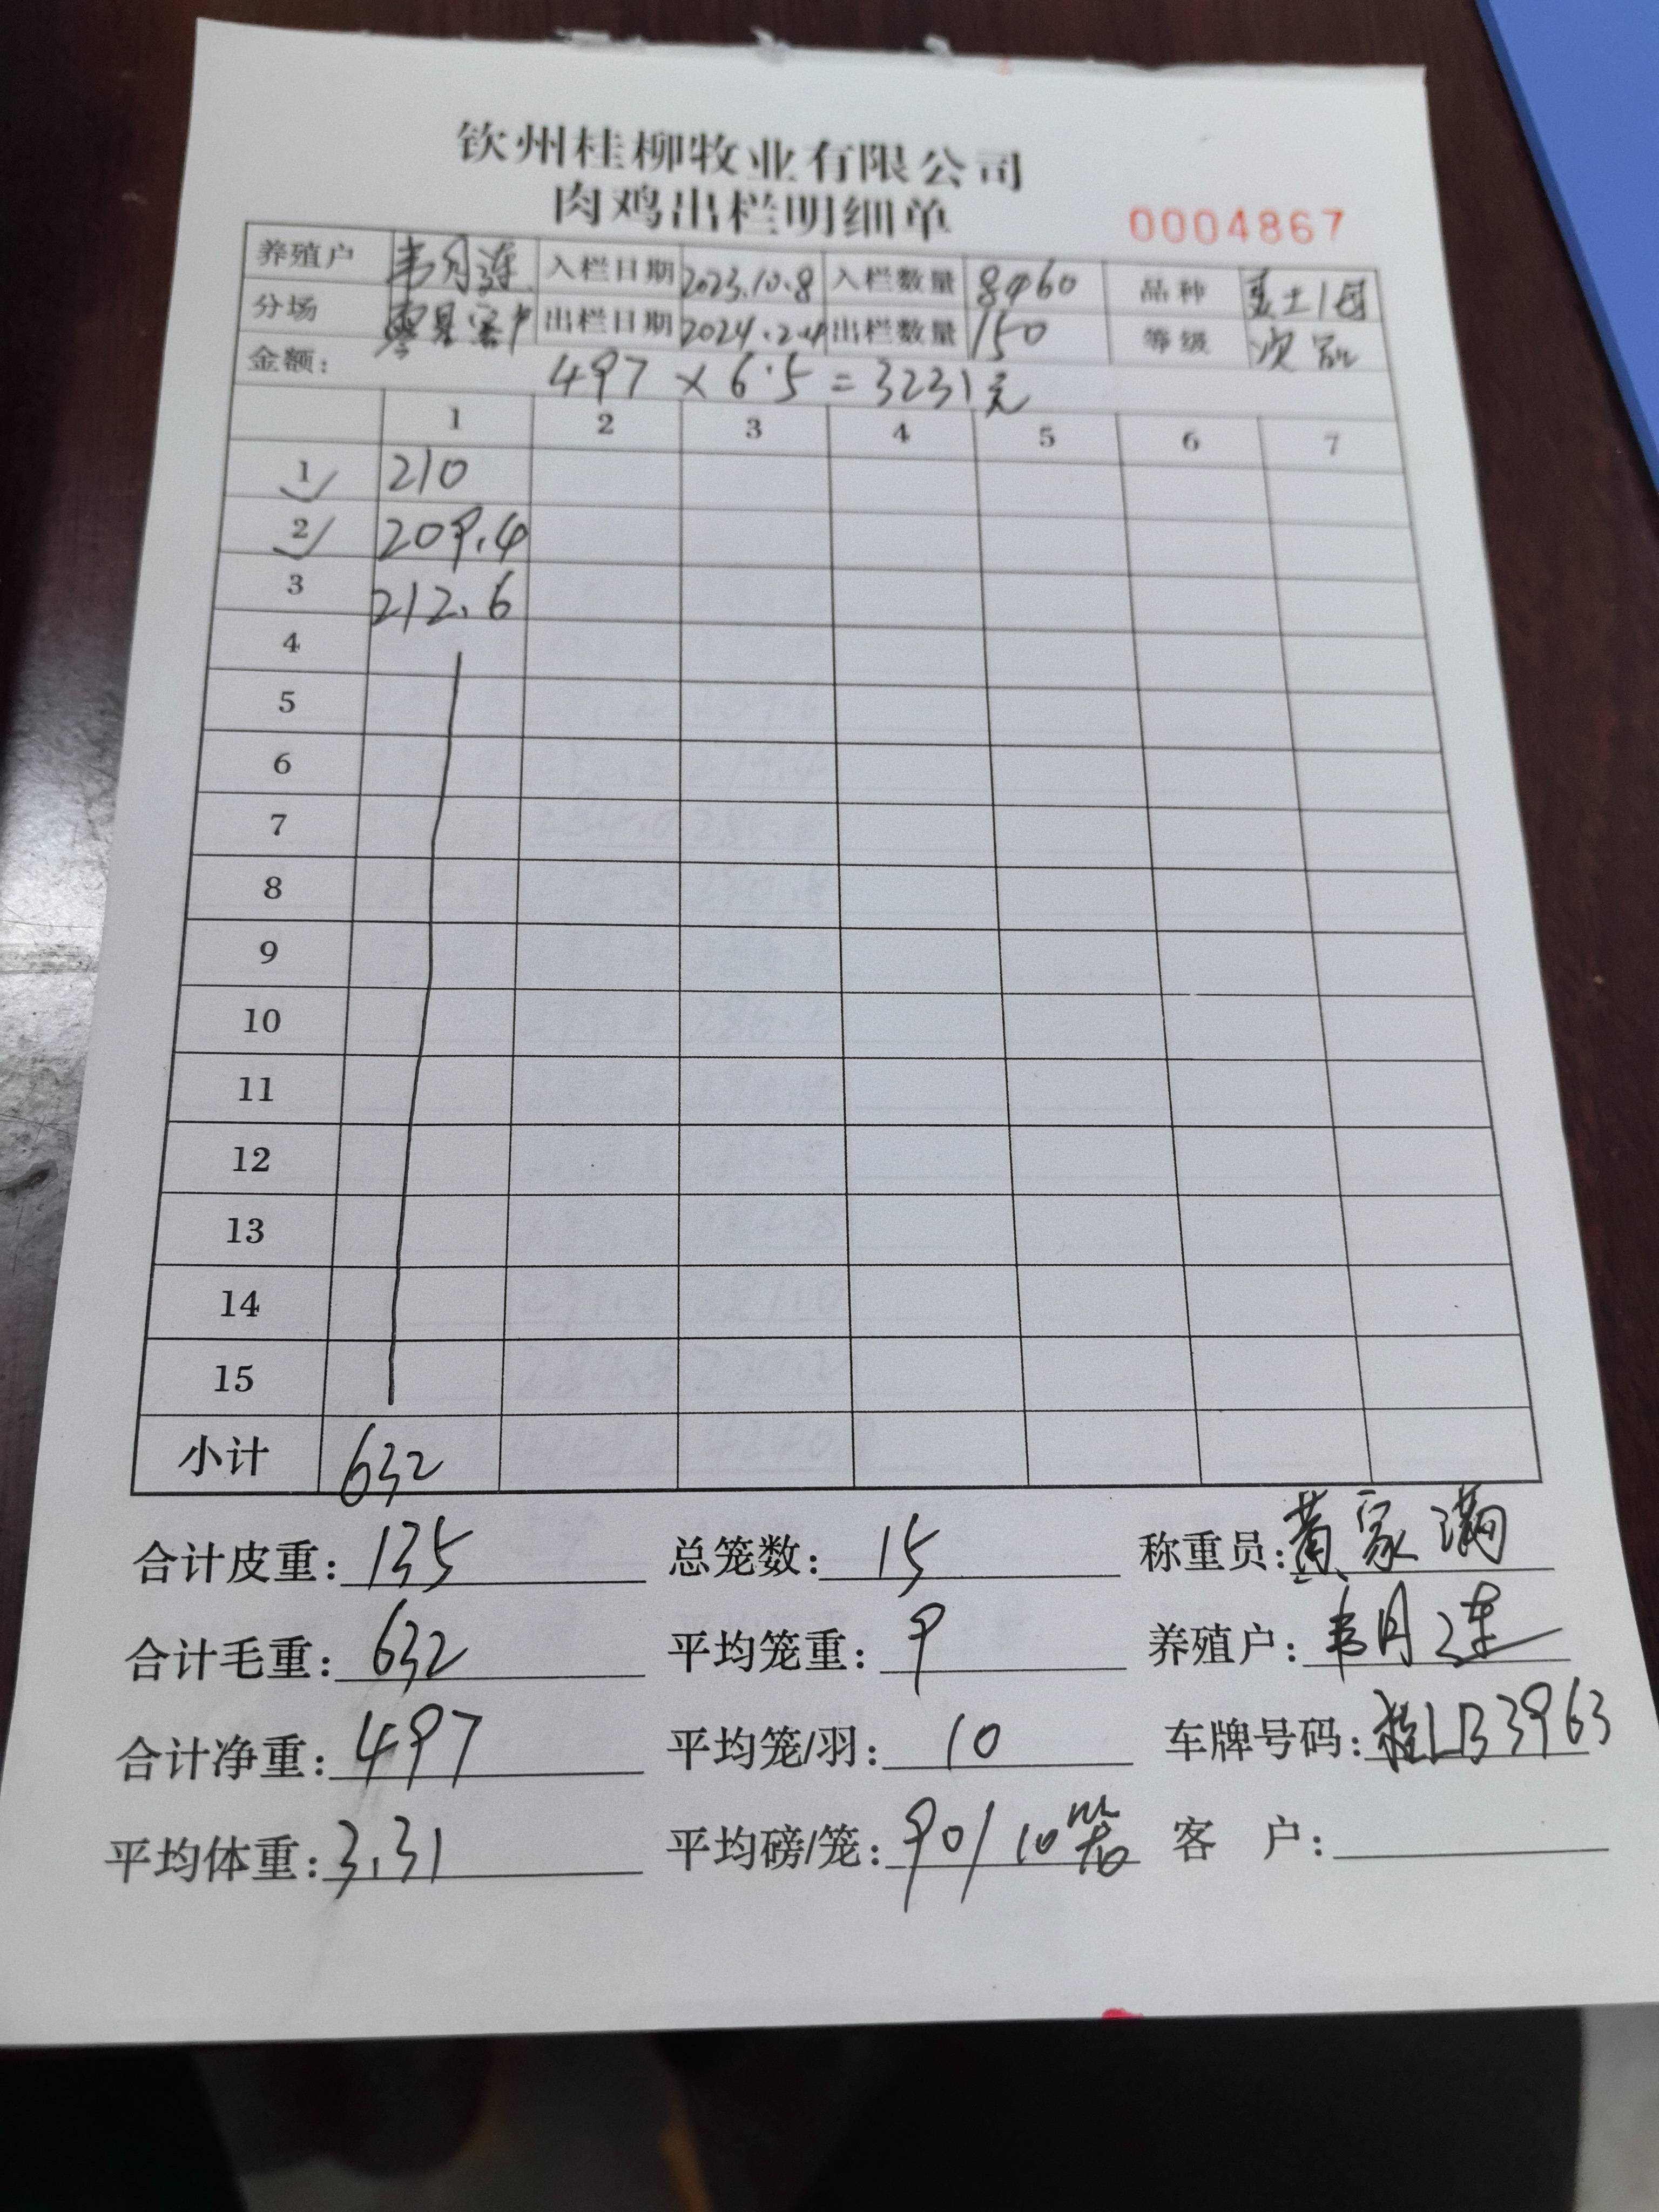 钦州桂柳牧业有限公司
肉鸡出栏明细单
0004867
养殖户 韦月莲 入栏日期 2023.10.8 入栏数量 8460 品种 土1母
分场 客户 出栏日期 2024.2.4 出栏数量 150 等级 次品
金额： 497 × 6.5 = 3231元
1 2 3 4 5 6 7
1 210
2 209.4
3 212.6
4
5
6
7
8
9
10
11
12
13
14
15
小计 632
合计皮重： 135 总笼数： 15 称重员： 黄家满
合计毛重： 632 平均笼重： 9 养殖户： 韦月莲
合计净重： 497 平均笼/羽： 10 车牌号码： 桂LB3963
平均体重： 3.31 平均磅/笼： 90/10 客 户：